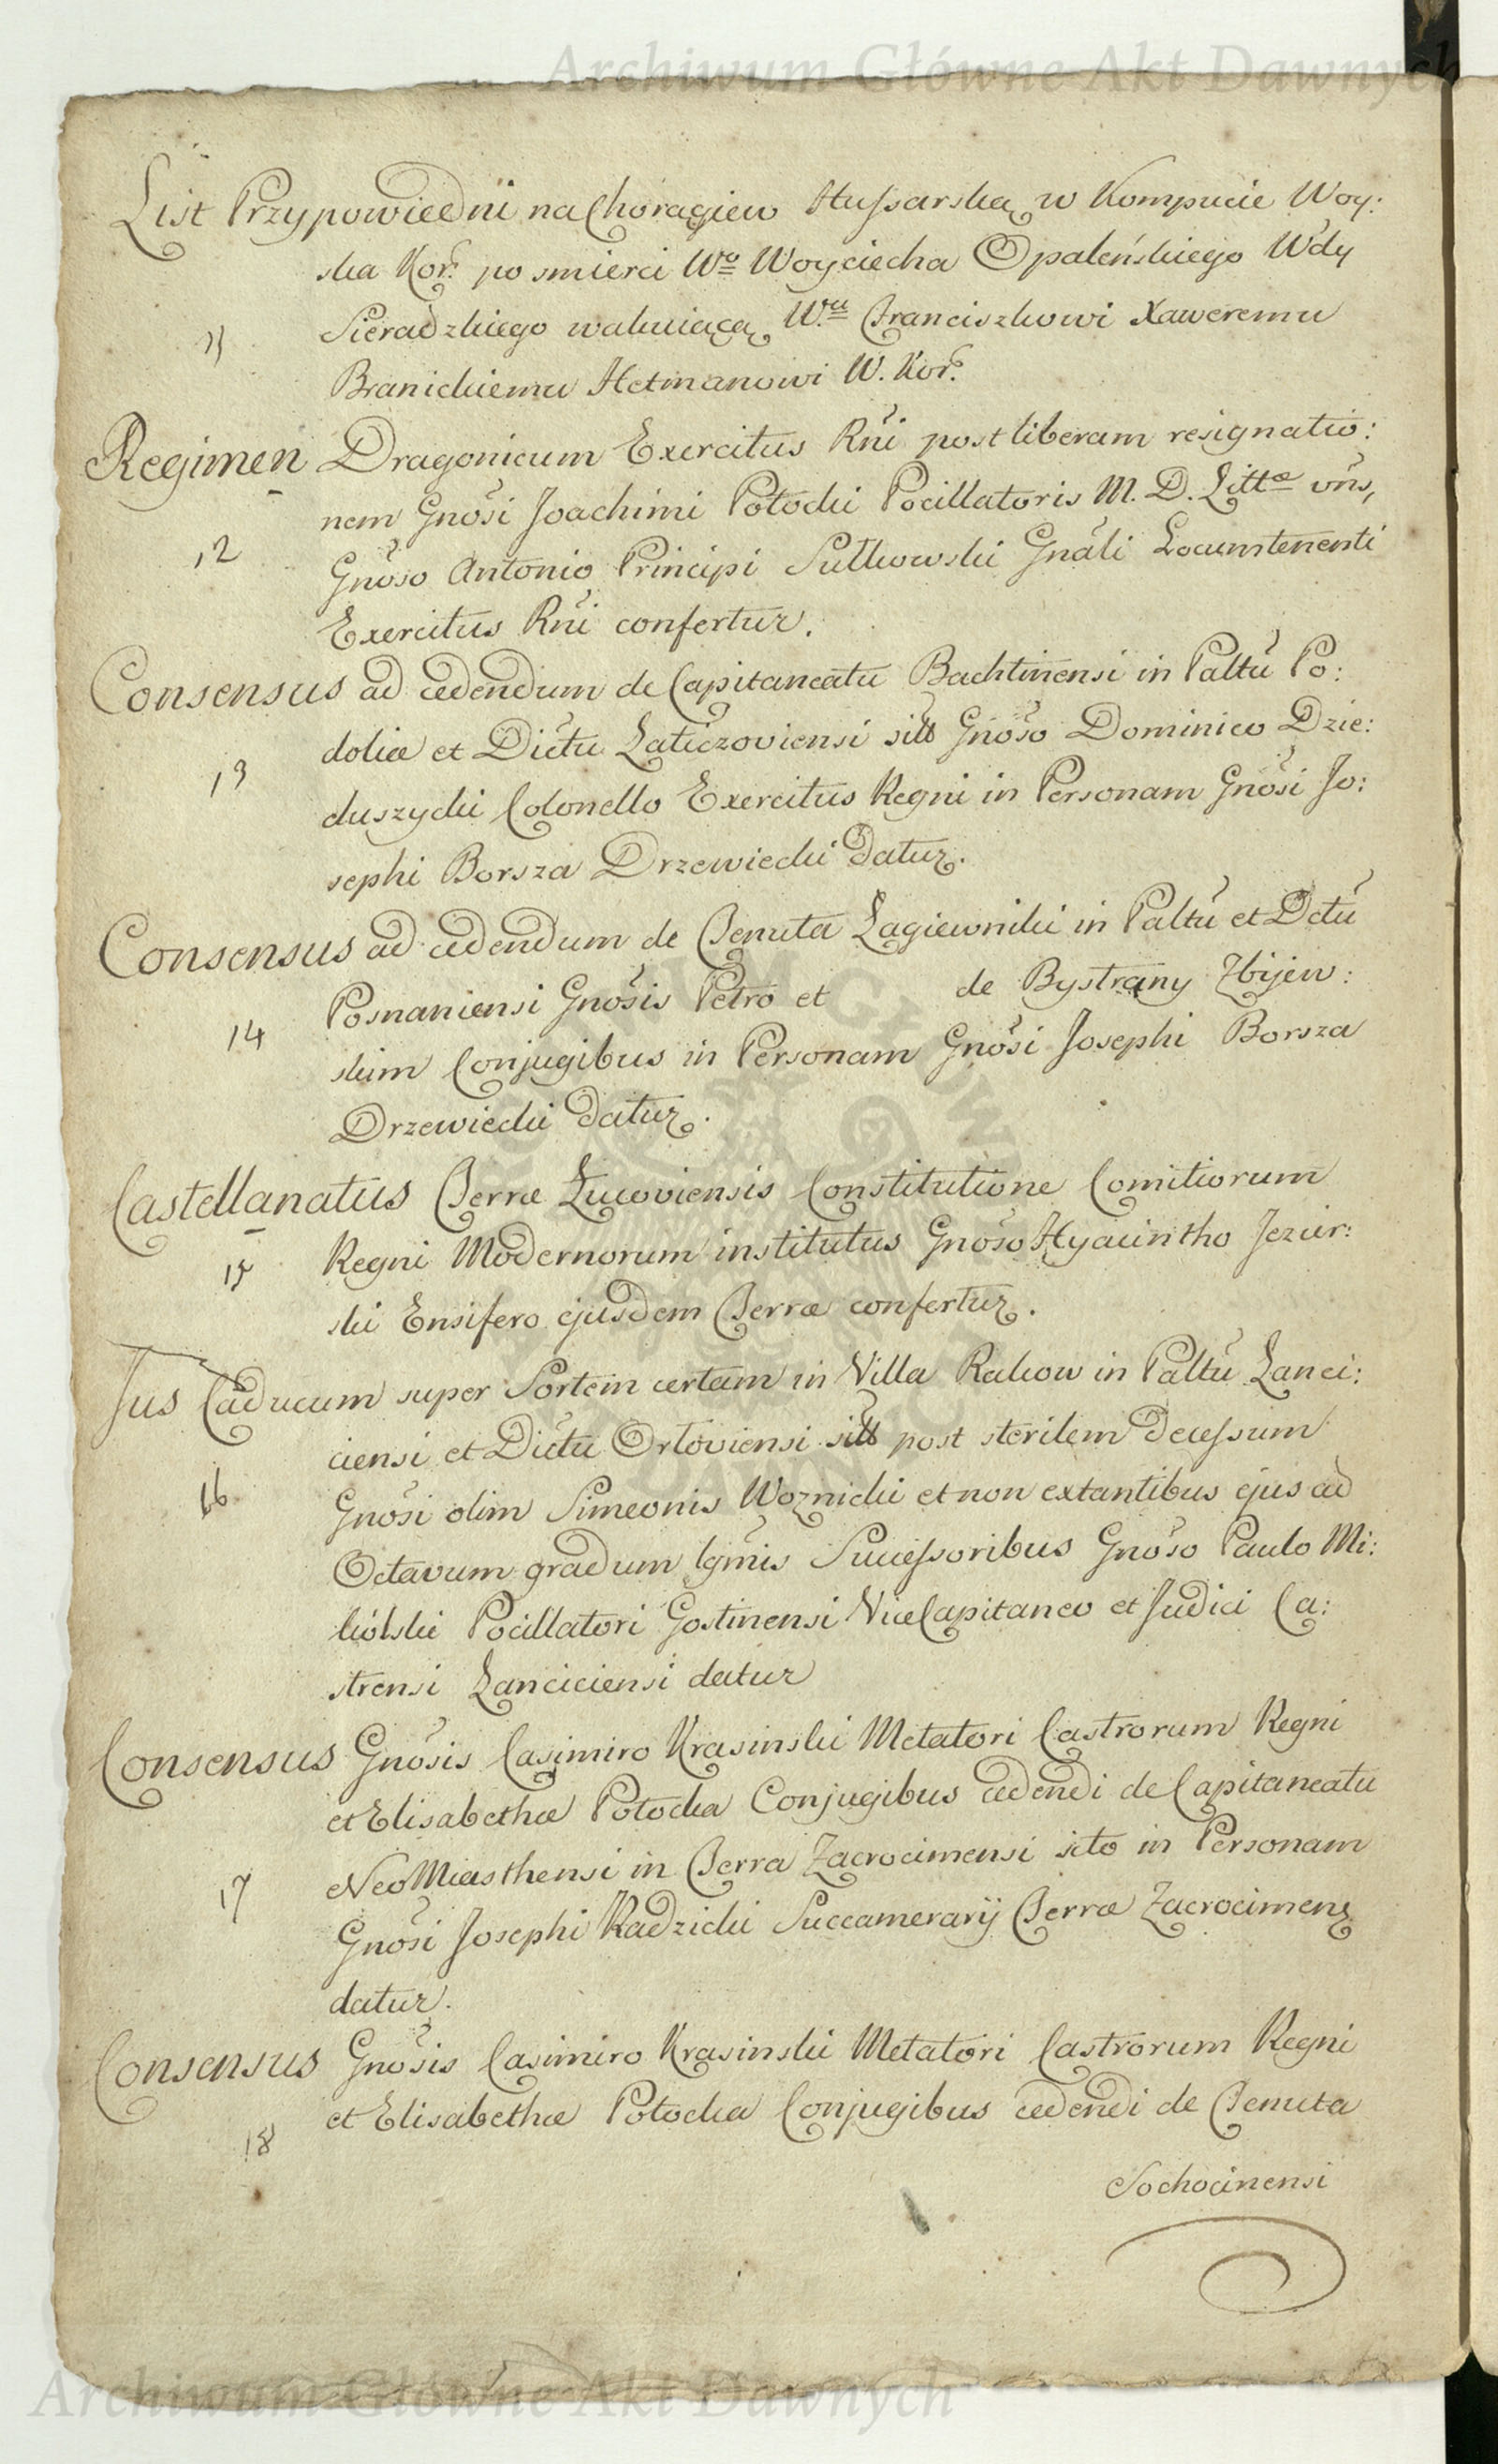 Archiwum Główne Akt Dawnych
List Przypowiedni na Chorągiew Hussarską w Kompucie Woy:
ska Kor: po smierci Wo Woyciecha Opaleńskiego Wdy
11 Sieradzkiego wakuiącą Wu Franciszkowi Xaweremu
Branickiemu Hetmanowi W. Kor:
Regimen Dragonicum Exercitus Rni post liberam resignatio:
nem Gnosi Joachimi Potocki Pocillatoris M. D. Littae vns,
12 Gnoso Antonio Principi Sułkowski Gnali Locumtenenti
Exercitus Rni confertur.
Consensus ad cedendum de Capitaneatu Bachtinensi in Paltu Po:
doliæ et Dictu Laticzoviensi sitt Gnoso Dominico Dzie:
13 duszycki Colonello Exercitus Regni in Personam Gnosi Jo:
sephi Borsza Drzewiecki datur.
Consensus ad cedendum de Tenuta Łagiewniki in Paltu et Dctu
Posnaniensi Gnosis Petro et de Bystrany Zbijew:
14 skim Conjugibus in Personam Gnosi Josephi Borsza
Drzewiecki datur.
Castellanatus Terræ Łucoviensis Constitutione Comitiorum
15 Regni Modernorum institutus Gnoso Hyacintho Jezier:
ski Ensifero ejusdem Terræ confertur.
Jus Caducum super Sortem certam in Villa Rakow in Paltu Lanci:
ciensi et Dictu Orłoviensi sitt post sterilem decessum
16 Gnosi olim Simeonis Woznicki et non extantibus ejus ad
Octavum gradum lgmis Successoribus Gnoso Paulo Mi:
kólski Pocillatori Gostinensi ViceCapitaneo et Judici Ca:
strensi Lanciciensi datur
Consensus Gnosis Casimiro Krasinski Metatori Castrorum Regni
et Elisabethæ Potocka Conjugibus cedendi de Capitaneatu
17 NeoMiasthensi in Terra Zacrocimensi sito in Personam
Gnosi Josephi Radzicki Succamerarij Terræ Zacrocimens
datur.
Consensus Gnosis Casimiro Krasinski Metatori Castrorum Regni
18 et Elisabethæ Potocka Conjugibus cedendi de Tenuta
Sochocinensi
Archiwum Główne Akt Dawnych